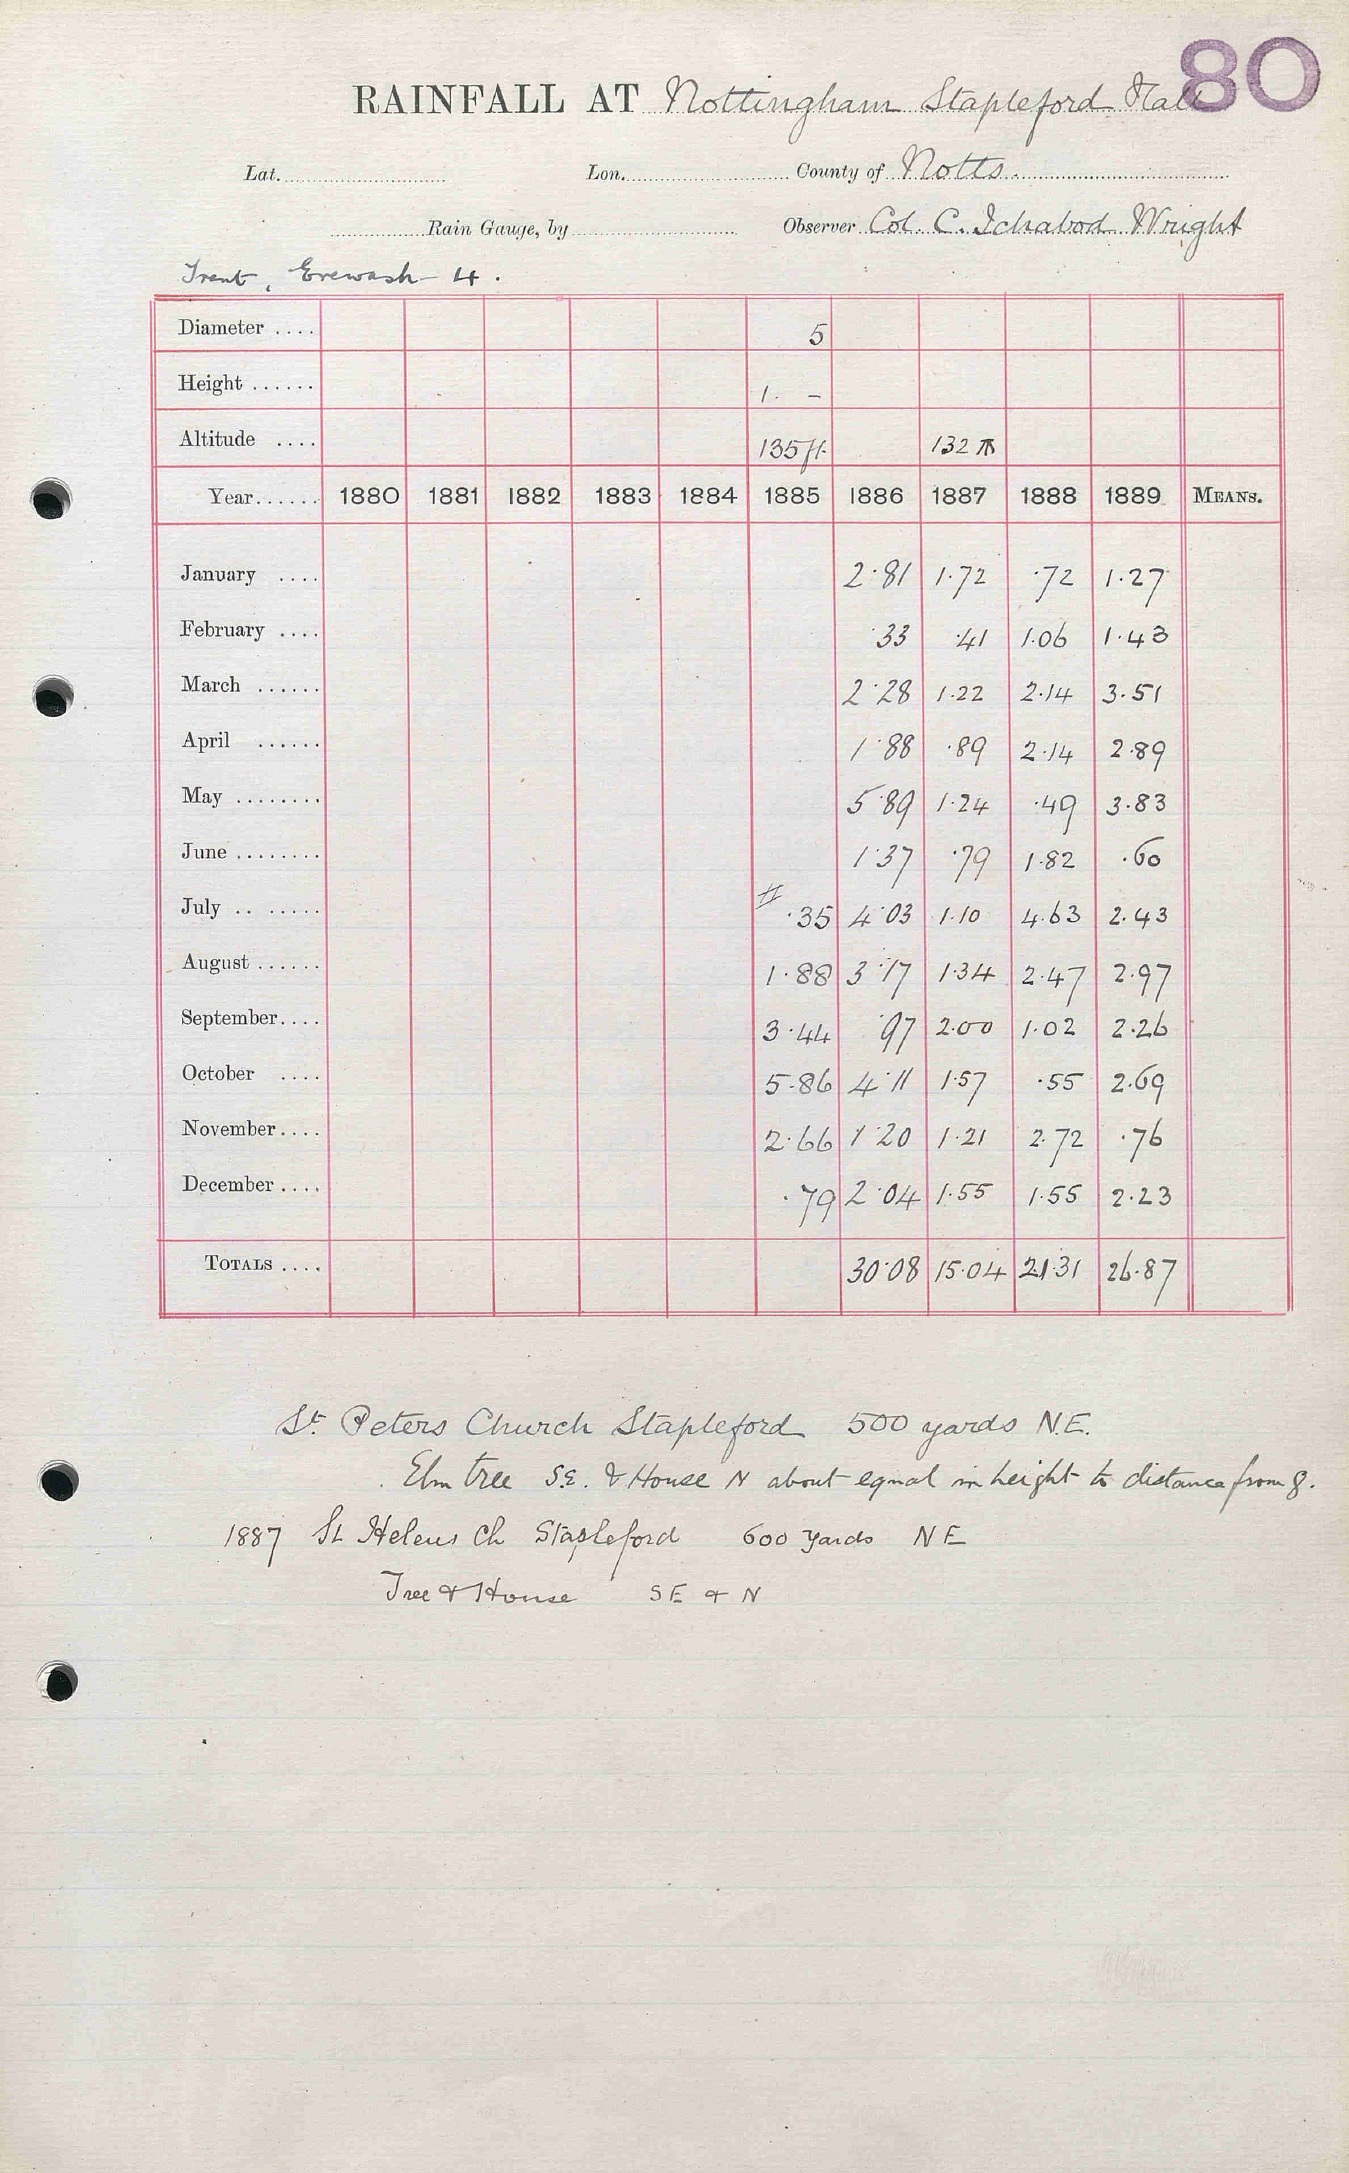 80
RAINFALL AT Nottingham Stapleford Hall
Lat. Lon. County of Notts
Rain Gauge, by Observer Col. C. Ichabod Wright
Trent, Erewash 4.
Diameter .... 5
Height ...... 1. -
Altitude .... 135 ft. 132
Year...... 1880 1881 1882 1883 1884 1885 1886 1887 1888 1889 MEANS.
January .... 2.81 1.72 .72 1.27
February .... .33 .41 1.06 1.43
March ...... 2.28 1.22 2.14 3.51
April ...... 1.88 .89 2.14 2.89
May ........ 5.89 1.24 .49 3.83
June ........ 1.37 .79 1.82 .60
July .. ..... .35 4.03 1.10 4.63 2.43
August ...... 1.88 3.17 1.34 2.47 2.97
September.... 3.44 .97 2.00 1.02 2.26
October .... 5.86 4.11 1.57 .55 2.69
November.... 2.66 1.20 1.21 2.72 .76
December.... .79 2.04 1.55 1.55 2.23
TOTALS .... 30.08 15.04 21.31 26.87
St. Peters Church Stapleford 500 yards N.E.
Elm tree S.E. & House N about equal in height to distance from g.
1887 St Helens Ch Stapleford 600 yards NE
Tree & House SE & N